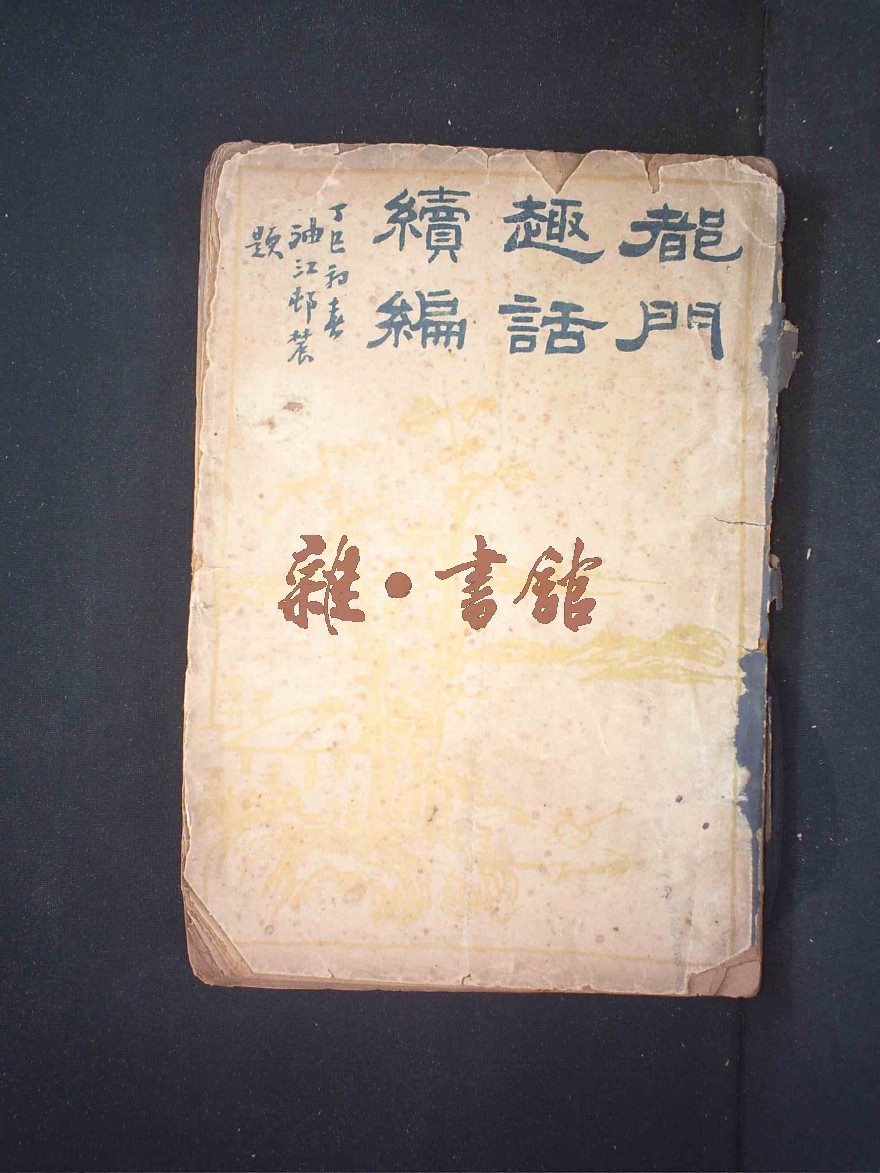 都門
趣話
續編
丁巳初春
江邨
題
雜·書館